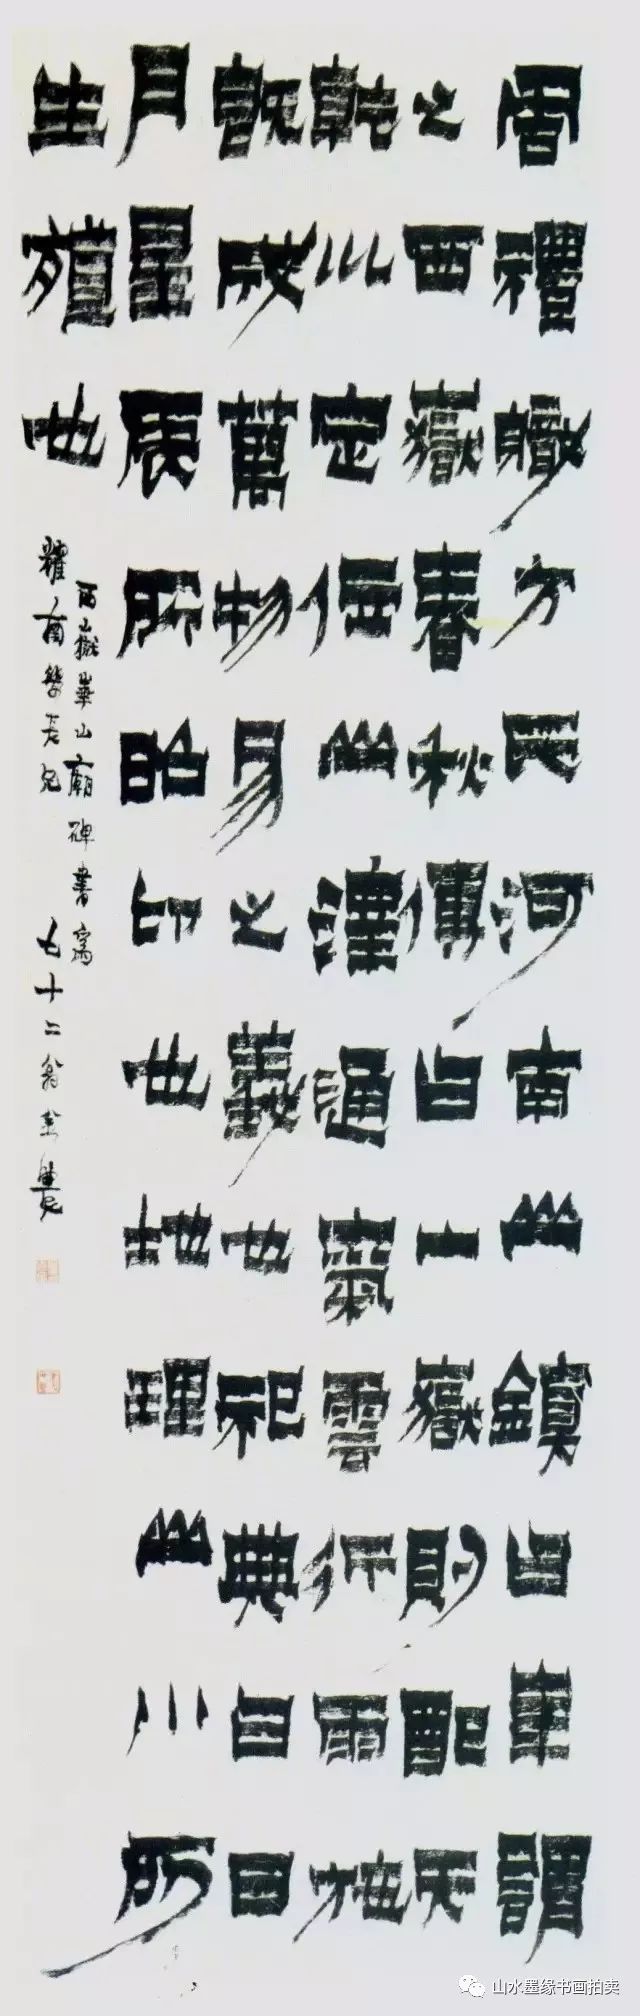 周禮職方氏河南山鎮曰華謂
之西嶽春秋傳曰山嶽則配天
乾川定位山澤通氣雲行雨施
既成萬物易之義也祀典曰日
月星辰所昭卬也地理山川所
生殖也
西嶽華山廟碑書
耀南學長兄 七十二翁金農
山水墨缘书画拍卖